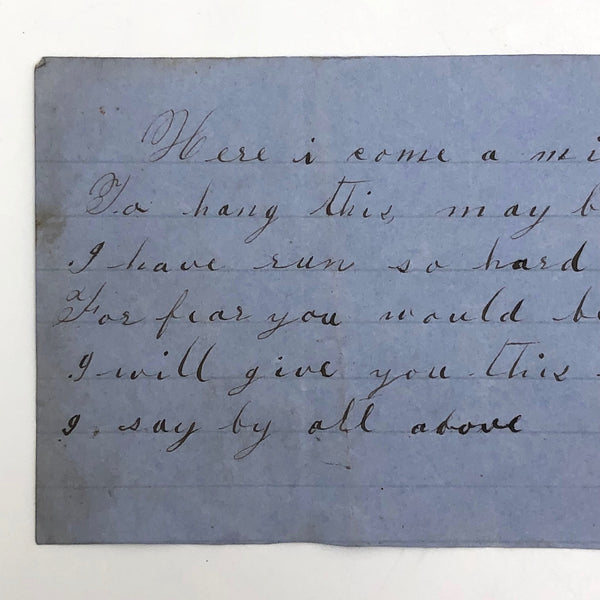 Here i come a mi
To hang this may b
I have run so hard
For fear you would be
I will give you this
I say by all above